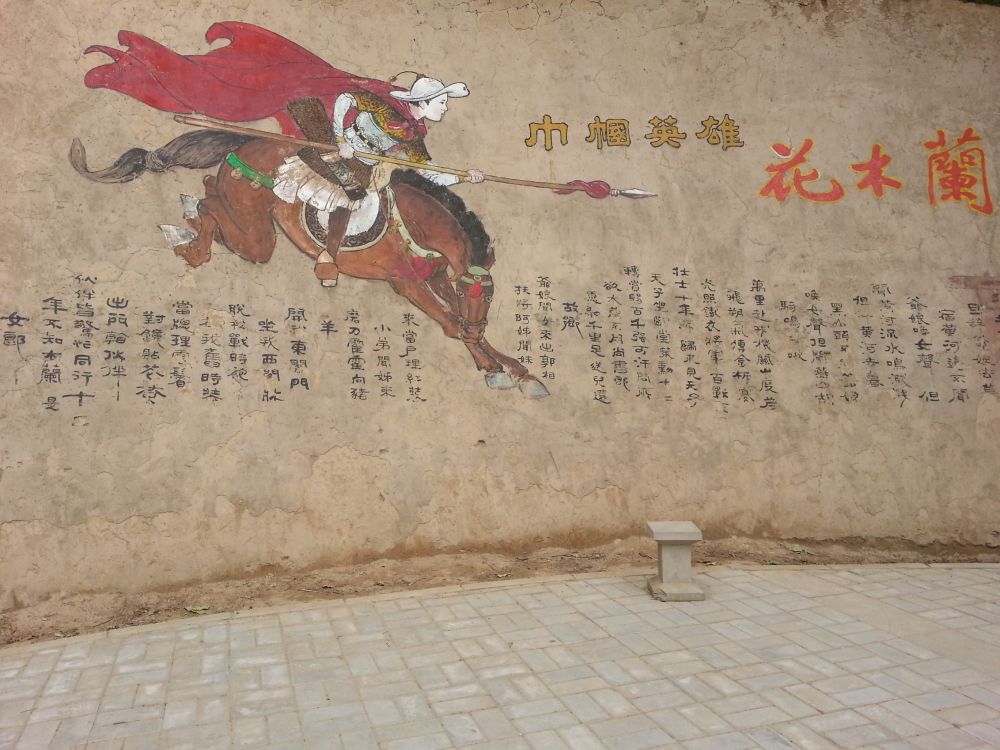 巾帼英雄
花木蘭
宿黃河邊不聞
爺娘喚女聲 但
河流水鳴濺濺
但 黃河去暮
黑山頭不 爺娘
喚女聲但聞燕山胡
騎鳴啾啾
萬里赴戎機關山度若
飛朔氣傳金柝寒
光照鐵衣將軍百戰死
壯士十年歸歸來見天子
天子坐明堂策勳十二
轉賞賜百千強可汗問所
欲木蘭不用尚書郎
愿馳千里足送兒還
故鄉
爺娘聞女來出郭相
扶將阿姊聞妹
來當戶理紅妝
小弟聞姊來
磨刀霍霍向豬
羊
開我東閣門
坐我西閣牀
脫我戰時袍
著我舊時裝
當窗理雲鬢
對鏡貼花黃
出門看伙伴
伙伴皆驚忙同行十二
年不知木蘭是
女郎